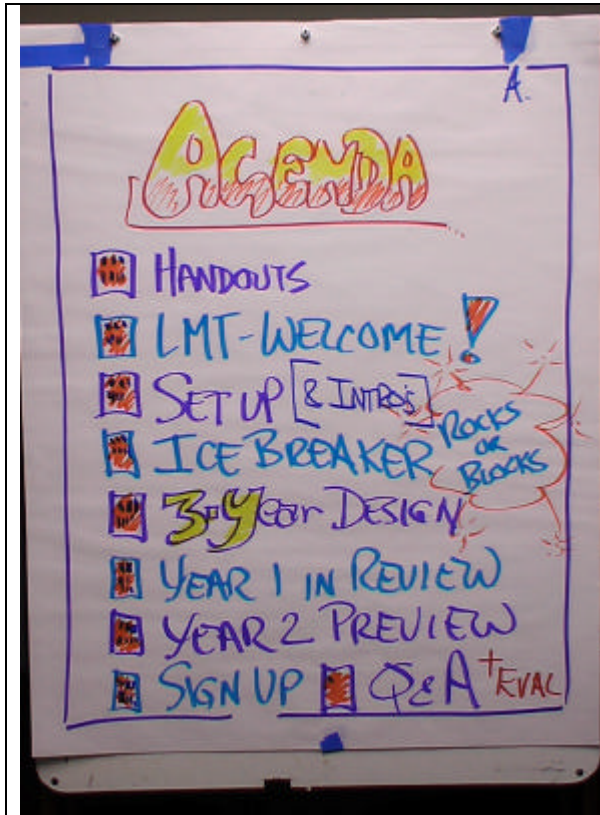 A.
AGENDA
HANDOUTS
LMT-WELCOME!
SET UP [& INTRO'S]
ICE BREAKER
ROCKS
OR
BLOCKS
3-Year DESIGN
YEAR 1 IN REVIEW
YEAR 2 PREVIEW
SIGN UP Q&A +EVAL